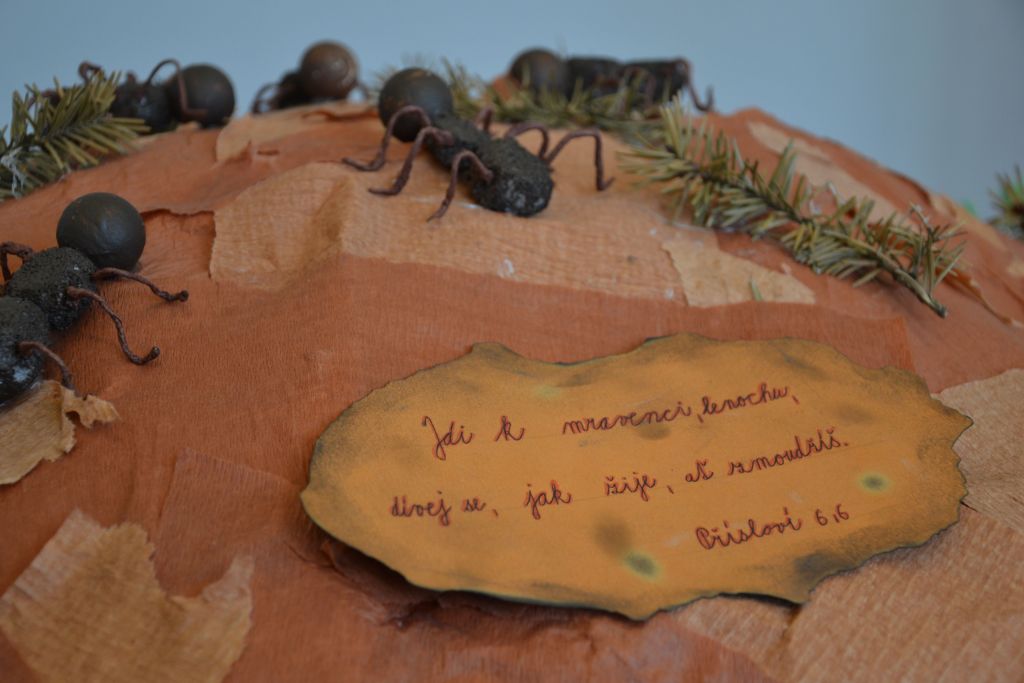 Jdi k mravenci, lenochu,
dívej se, jak žije, ať zmoudříš.
Přísloví 6,6